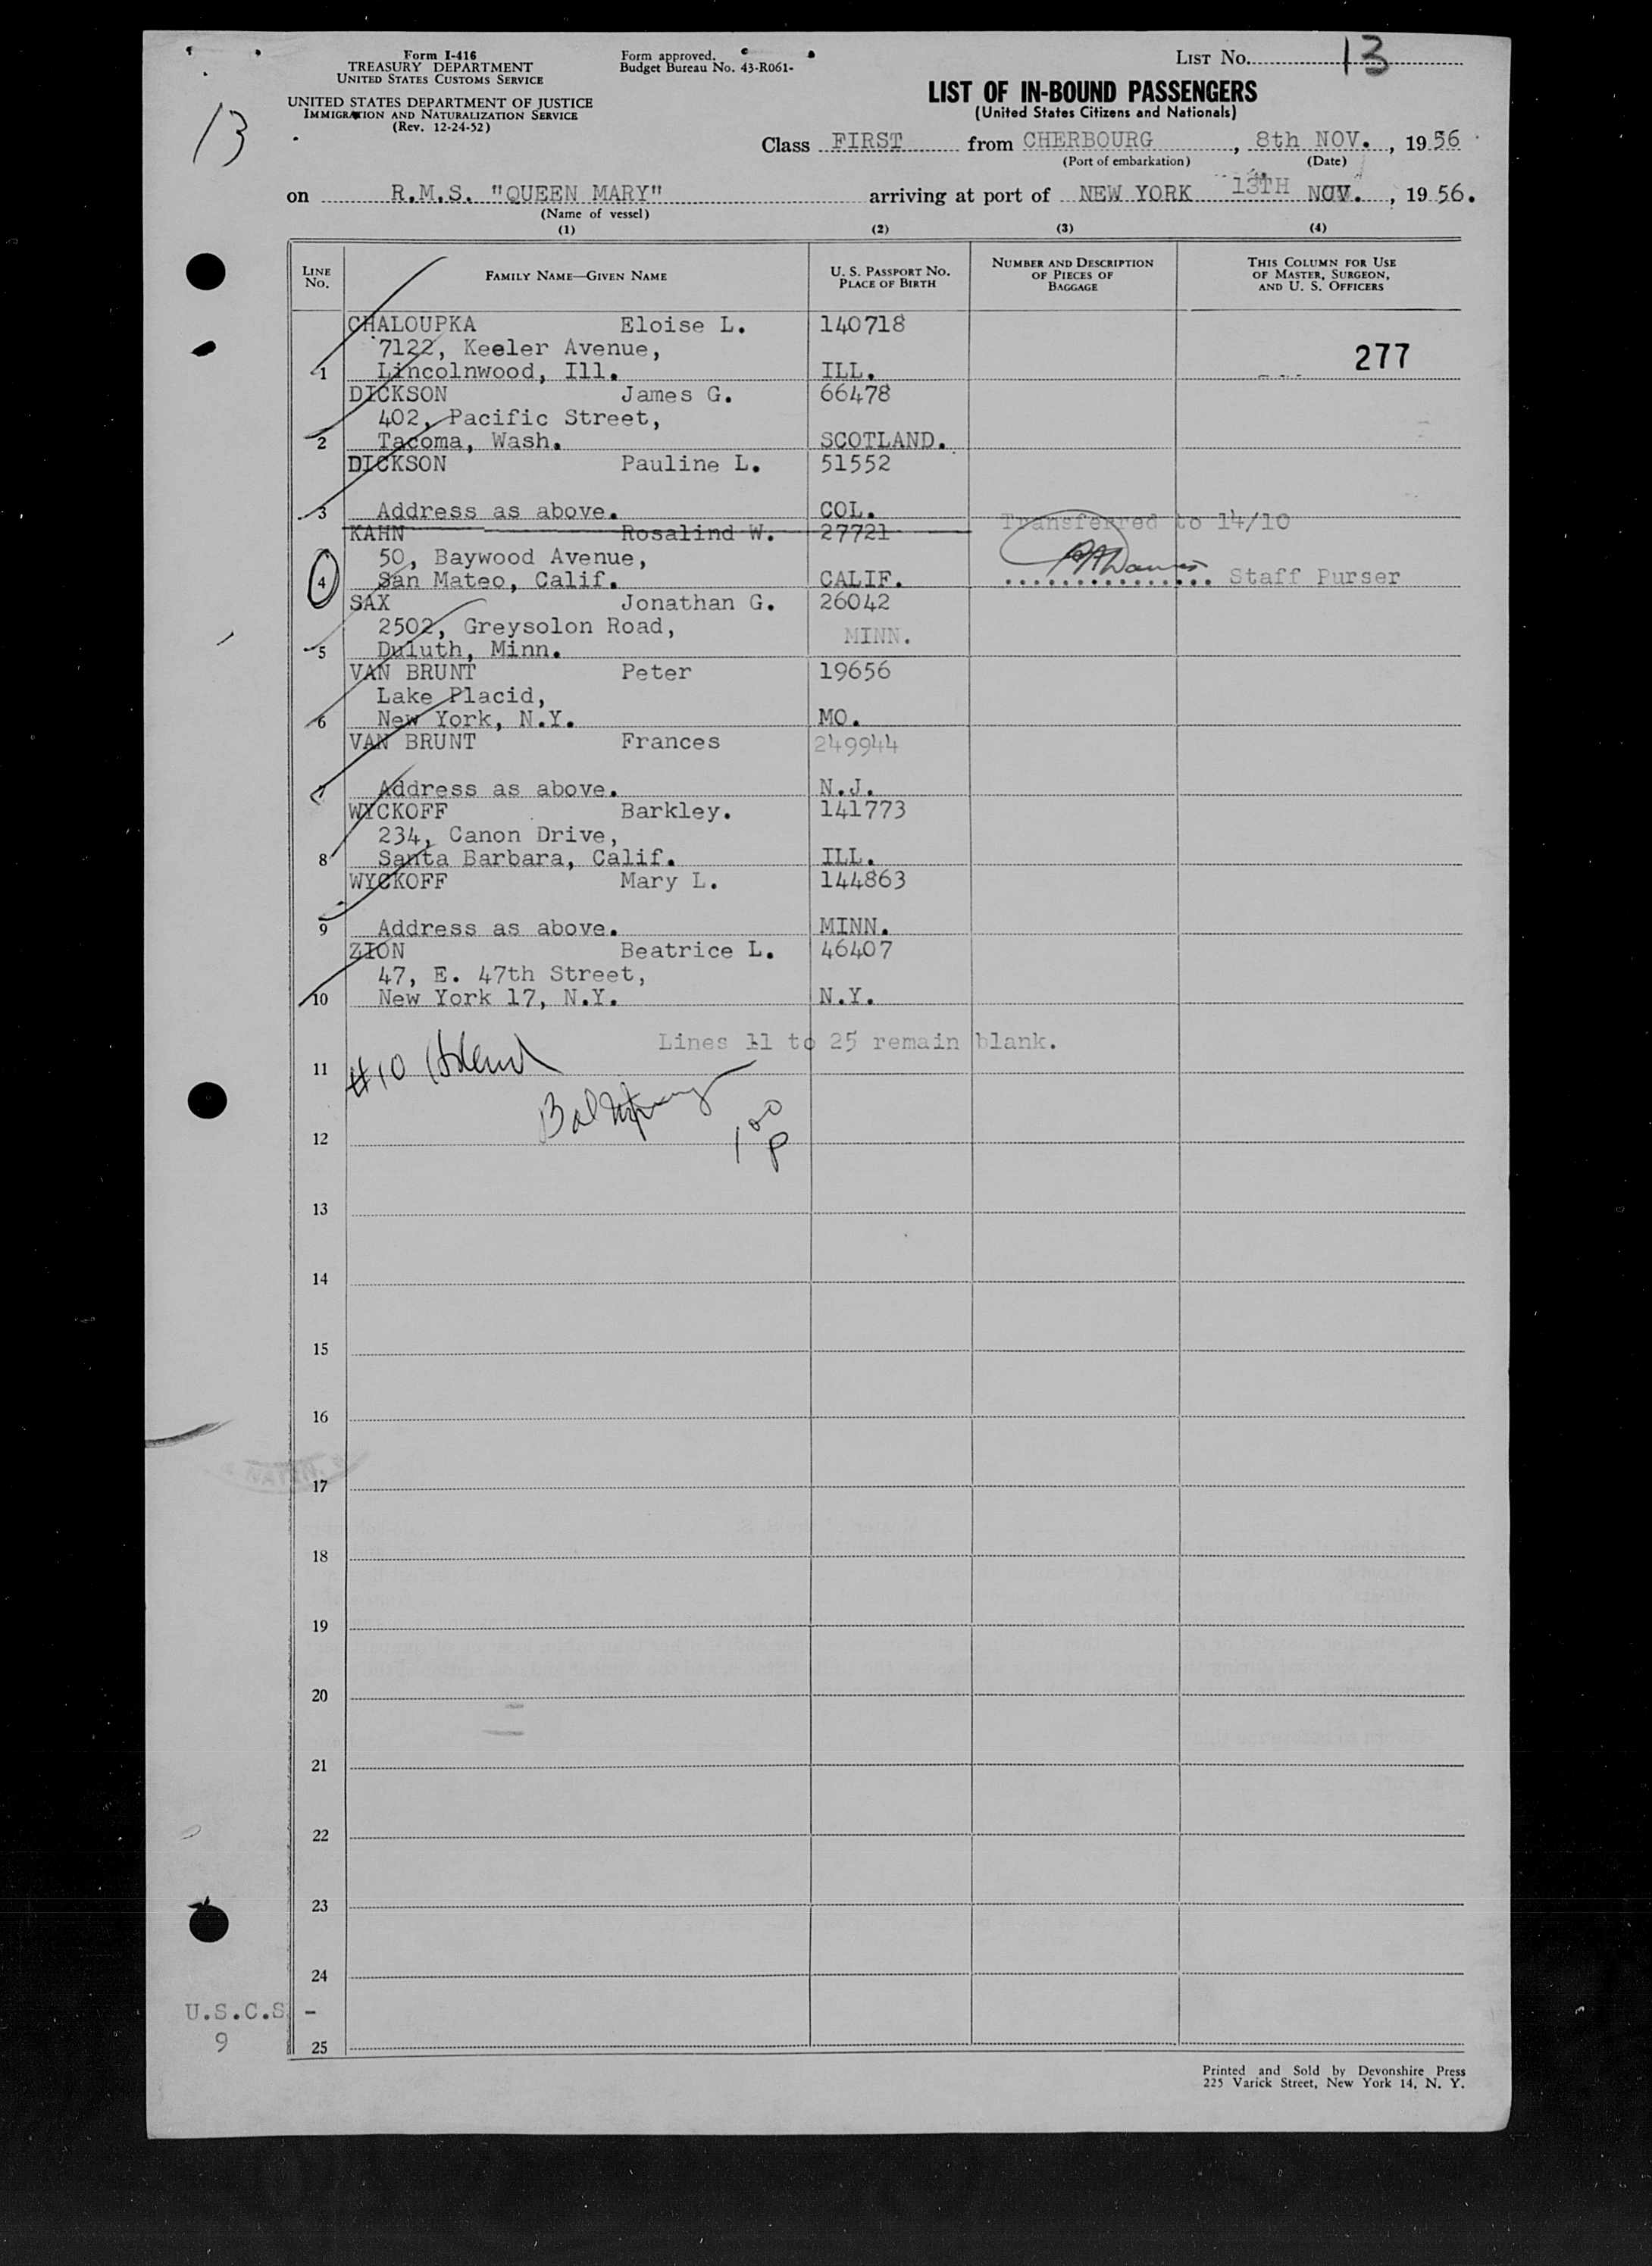 Form I-416
TREASURY DEPARTMENT
UNITED STATES CUSTOMS SERVICE
UNITED STATES DEPARTMENT OF JUSTICE
IMMIGRATION AND NATURALIZATION SERVICE
(Rev. 12-24-52)
Form approved.
Budget Bureau No. 43-R061-
LIST No. 13
13
LIST OF IN-BOUND PASSENGERS
(United States Citizens and Nationals)
Class FIRST from CHERBOURG, 8th NOV., 1956
(Port of embarkation) (Date)
on R.M.S. "QUEEN MARY" arriving at port of NEW YORK 13TH NOV., 1956.
(Name of vessel)
(1) (2) (3) (4)
LINE No. FAMILY NAME—GIVEN NAME U. S. PASSPORT NO. PLACE OF BIRTH NUMBER AND DESCRIPTION OF PIECES OF BAGGAGE THIS COLUMN FOR USE OF MASTER, SURGEON, AND U. S. OFFICERS
CHALOUPKA Eloise L. 140718
7122, Keeler Avenue, 277
1 Lincolnwood, Ill. ILL.
DICKSON James G. 66478
402, Pacific Street,
2 Tacoma, Wash. SCOTLAND.
DICKSON Pauline L. 51552
3 Address as above. COL.
KAHN Rosalind W. 27721 Transferred to 14/10
50, Baywood Avenue,
4 San Mateo, Calif. CALIF. Staff Purser
SAX Jonathan G. 26042
2502, Greysolon Road, MINN.
5 Duluth, Minn.
VAN BRUNT Peter 19656
Lake Placid,
6 New York, N.Y. MO.
VAN BRUNT Frances 249944
7 Address as above. N.J.
WYCKOFF Barkley. 141773
234, Canon Drive,
8 Santa Barbara, Calif. ILL.
WYCKOFF Mary L. 144863
9 Address as above. MINN.
ZION Beatrice L. 46407
47, E. 47th Street,
10 New York 17, N.Y. N.Y.
Lines 11 to 25 remain blank.
11 #10
Bal
12
13
14
15
16
17
18
19
20
21
22
23
24
U.S.C.S -
9
25
Printed and Sold by Devonshire Press
225 Varick Street, New York 14, N. Y.